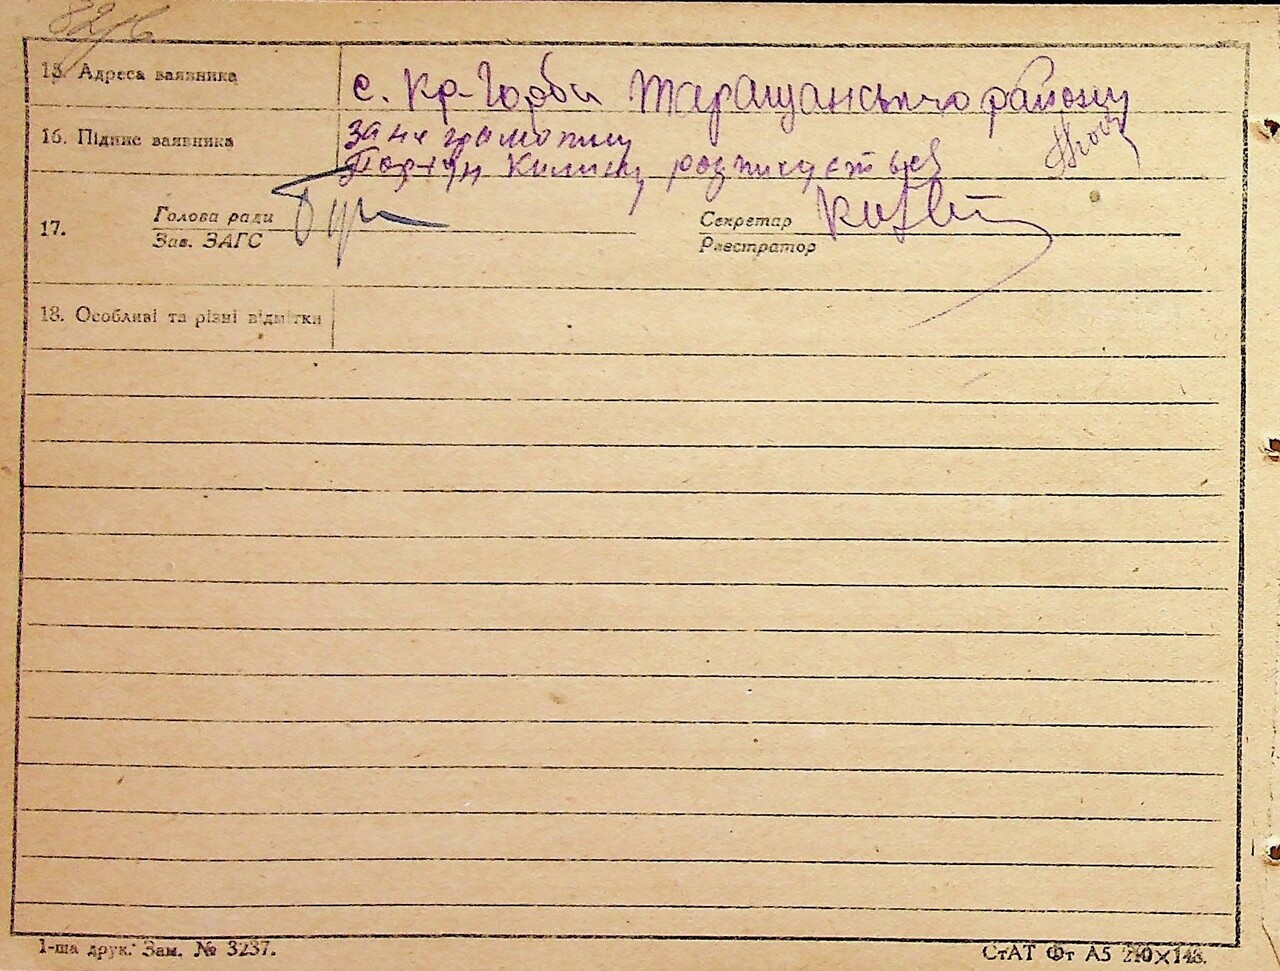 82/6
15. Адреса заявника с. Кр-Горби Таращанського району
16. Підпис заявника за не грамотну
Килину розписується
17. Голова ради Секретар
Зав. ЗАГС Реєстратор
18. Особливі та різні відмітки
1-ша друк. Зам. № 3237. СтАТ Фт А5 210×148.